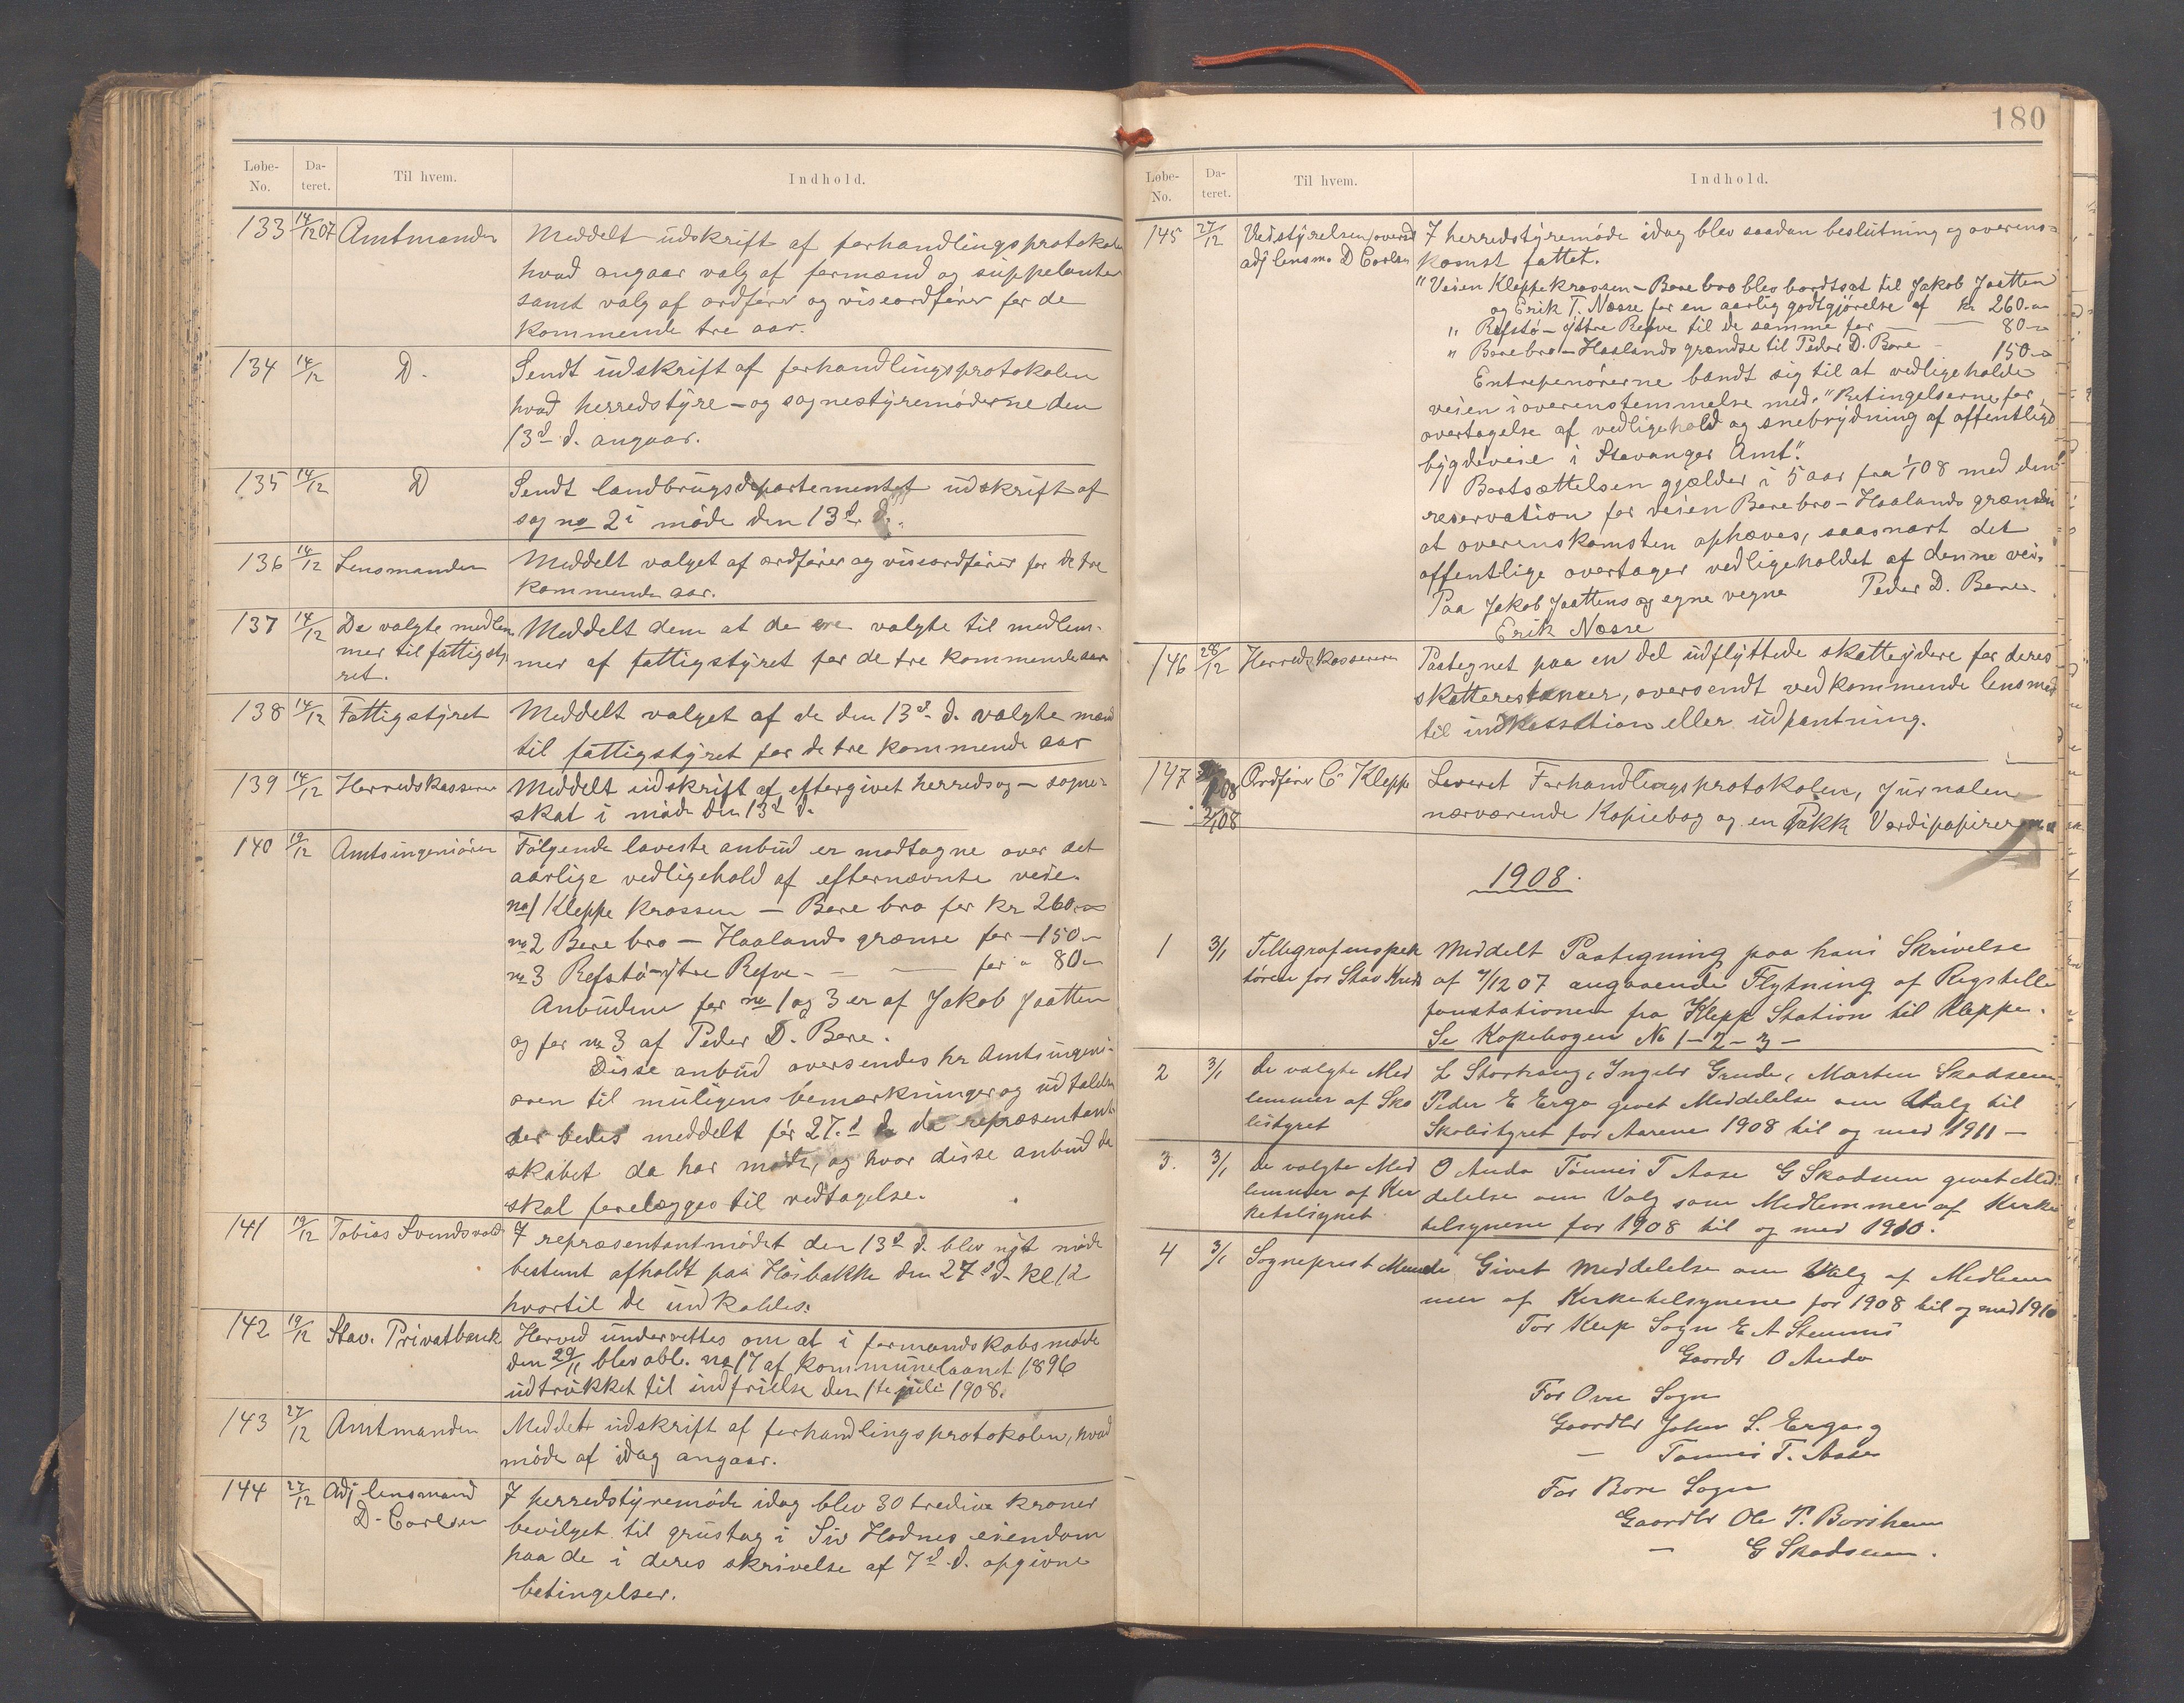 Løbe-No. Da-teret. Til hvem. Indhold.
133 14/12 07 Amtmanden Meddelt udskrift af forhandlingsprotokolen
hvad angaar valg af formænd og suppelanter
samt valg af ordfører og viseordfører for de
kommende tre aar.
134 14/12 D. Sendt udskrift af forhandlingsprotokolen
hvad herredstyre- og sognestyremøderne den
13d d. angaar.
135 14/12 D Sendt landbrugsdepartementet udskrift af
sag no 2 i møde den 13d d.
136 14/12 Lensmanden Meddelt valget af ordfører og viseordfører for de tre
kommende aar.
137 14/12 De valgte medlem
mer til fattigsty
ret.
Meddelt dem at de ere valgte til medlem-
mer af fattigstyret for de tre kommende aar
138 14/12 Fattigstyret Meddelt valget af de den 13d d. valgte mænd
til fattigstyret for de tre kommende aar
139 14/12 Herredskasserer Meddelt udskrift af eftergivet herreds og - sogne-
skat i møde den 13d d.
140 19/12 Amtsingeniøren Følgende laveste anbud er modtagne over det
aarlige vedligehold af efternævnte veie.
no 1 Kleppe krossen - Bore bro for kr 260.
no 2 Bore bro - Haalands grænse for - 150 -
no 3 Refstø - ytre Refve - — — for " 80 -
Anbudene for no 1 og 3 er af Jakob Jaatten
og for no 3 af Peder D. Bore.
Disse anbud oversendes hr Amtsingeni-
øren til muligens bemærkninger og udtalelse
der bedes meddelt før 27.d d. da repræsentant-
skabet da har møde, og hvor disse anbud da
skal forelægges til vedtagelse.
141 19/12 Tobias Svendsvold I repræsentantmødet den 13d d. blev nyt møde
bestemt afholdt paa Høibakke den 27d d. kl 12
hvortil de indkaldes.
142 19/12 Stav. Privatbank Herved underrettes om at i formandskabsmøde
den 29/11 blev obl. no 17 af kommunelaanet 1896
udtrukket til indfrielse den 1te juli 1908.
143 27/12 Amtmanden Meddelt udskrift af forhandlingsprotokolen, hvad
møde af idag angaar.
144 27/12 Adj lensmand
D. Carlsen
I herredstyremøde idag blev 30 tredive kroner
bevilget til grustag i Siv Hodnes eiendom
paa de i deres skrivelse af 7d d. opgivne
betingelser.
180
Løbe-No. Da-teret. Til hvem. Indhold.
145 27/12 Veistyrelsen/oversd
adj lensm. D Carlsen
I herredstyremøde idag blev saadan beslutning og overens-
komst fattet.
"Veien Kleppekrossen - Bore bro blev bortsat til Jakob Jaatten
og Erik T. Næsse for en aarlig godtgjørelse af kr 260.
" Refstø - yttre Refve til de samme for — — 80 -
" Bore bro - Haalands grændse til Peder D. Bore - 150 -
Entrepenørerne bandt sig til at vedligeholde
veien i overenstemmelse med "Betingelserne for
overtagelse af vedligehold og snebrydning af offentlige
bygdeveie i Stavanger Amt".
Bortsættelsen gjælder i 5 aar fra 1/1 08 med den
reservation for veien Bore bro - Haalands grændse
at overenskomsten ophæves, saasnart det
offentlige overtager vedligeholdet af denne vei.
Paa Jakob Jaattens og egne vegne Peder D. Bore.
Erik Næsse
146 28/12 Herredskassereren Paategnet paa en del udflyttede skatteydere for deres
skatterestancer, oversendt vedkommende lensmed
til indkassation eller udpantning.
147 2/1 08 Ordfører C. Kleppe Leveret Forhandlingsprotokolen, Jurnalen
nærværende Kopiebog og en Pakke Værdipapirer
1908.
1 3/1 Tellegrafinspek
tøren for Stav Kreds
Meddelt Paategning paa hans Skrivelse
af 7/12 07 angaaende Flytning af Rigstelle
fonstationen fra Klepp Station til Kleppe.
Se Kopebogen No 1-2-3-
2 3/1 de valgte Med
lemmer af Sko
lestyret
L Storhaug, Ingebr Grude, Marten Skadsem
Peder E Erga givet Meddelelse om Valg til
Skolestyret for Aarene 1908 til og med 1911 -
3. 3/1 de valgte Med
lemmer af Kir
ketelsynet
O Anda Tønnes T Aase G Skadsem givet Med-
delelse om Valg som Medlemmer af Kirke
telsynene for 1908 til og med 1910.
4 3/1 Sogneprest Munch Givet Meddelelse om Valg af Medlem
mer af Kirketelsynene for 1908 til og med 1910
For Klep Sogn E A Stemmi
Gaardb O Anda
For Orre Sogn
Gaardbr Johan S. Erga og
— Tønnes T. Aase
For Bore Sogn
Gaardbr Ole P. Borsheim
— G Skadsem.